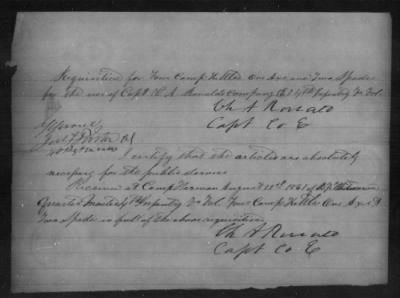 Requisition for Four Camp Kettles One Axe and Two Spades
for the use of Capt Ch A Ronalds company (E) 4th Infantry Va Vol.
Ch A Ronald
Capt Co E
Approved
I certify that the articles are absolutely
necessary for the public service
Received at Camp Harman August 21st 1861 of
Quarter Master 4th Infantry Va Vol. Four Camp Kettles One Axe &
Two Spades in full of the above requisition
Ch A Ronald
Capt Co E